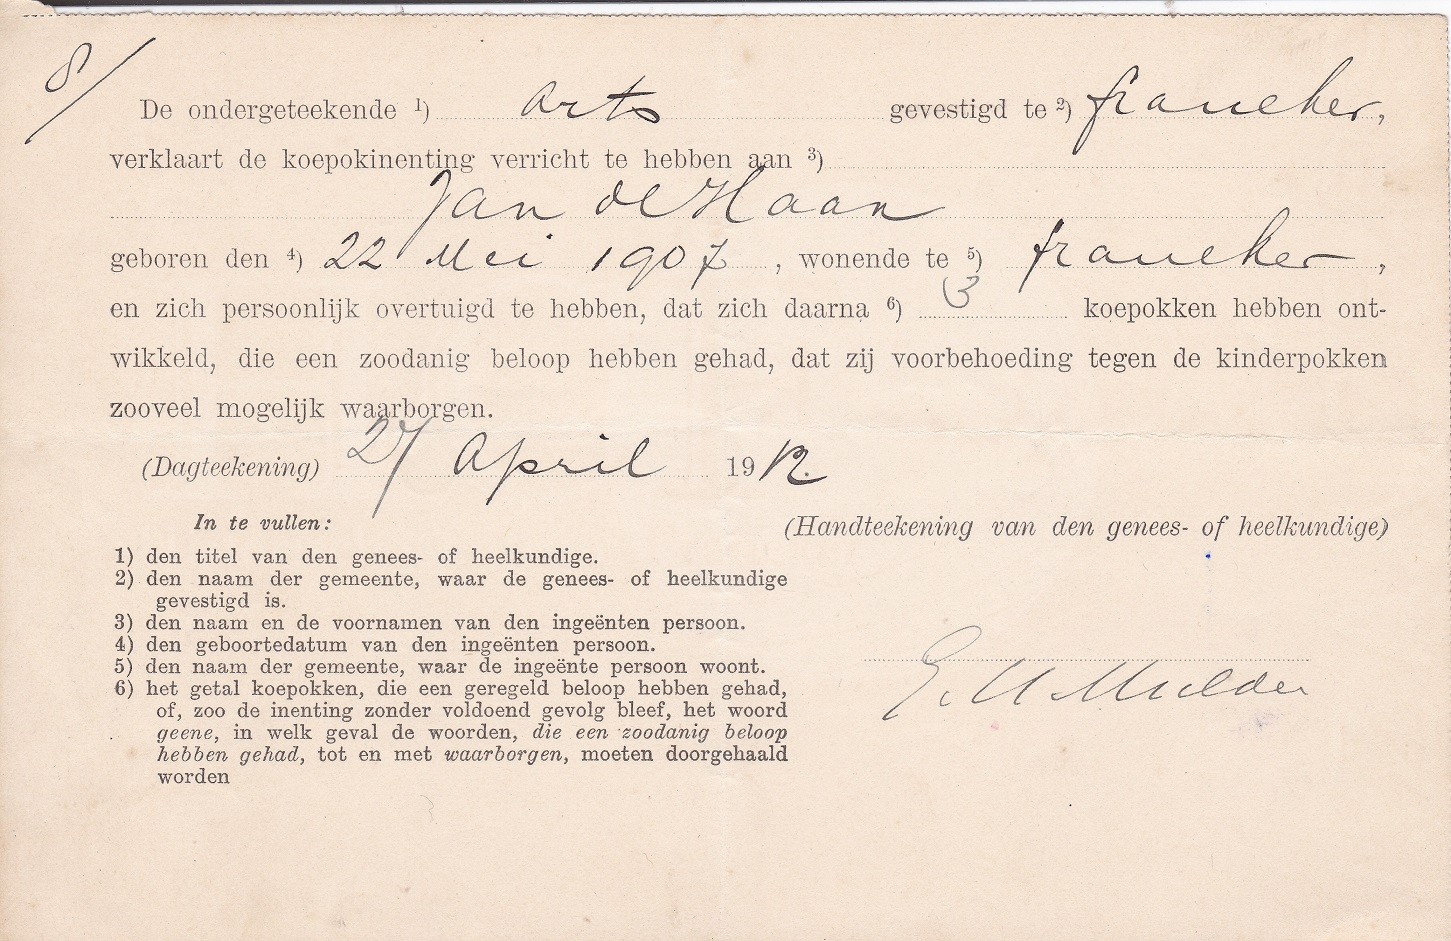 8/
De ondergeteekende 1) Arts gevestigd te 2) franeker,
verklaart de koepokinenting verricht te hebben aan 3)
Jan de Haan
geboren den 4) 22 Mei 1907, wonende te 5) franeker,
en zich persoonlijk overtuigd te hebben, dat zich daarna 6) 3 koepokken hebben ont-
wikkeld, die een zoodanig beloop hebben gehad, dat zij voorbehoeding tegen de kinderpokken
zooveel mogelijk waarborgen.
(Dagteekening) 27 April 1912.
In te vullen:
(Handteekening van den genees- of heelkundige)
1) den titel van den genees- of heelkundige.
2) den naam der gemeente, waar de genees- of heelkundige
gevestigd is.
3) den naam en de voornamen van den ingeënten persoon.
4) den geboortedatum van den ingeënten persoon.
5) den naam der gemeente, waar de ingeënte persoon woont.
6) het getal koepokken, die een geregeld beloop hebben gehad,
of, zoo de inenting zonder voldoend gevolg bleef, het woord
geene, in welk geval de woorden, die een zoodanig beloop
hebben gehad, tot en met waarborgen, moeten doorgehaald
worden
Mulder